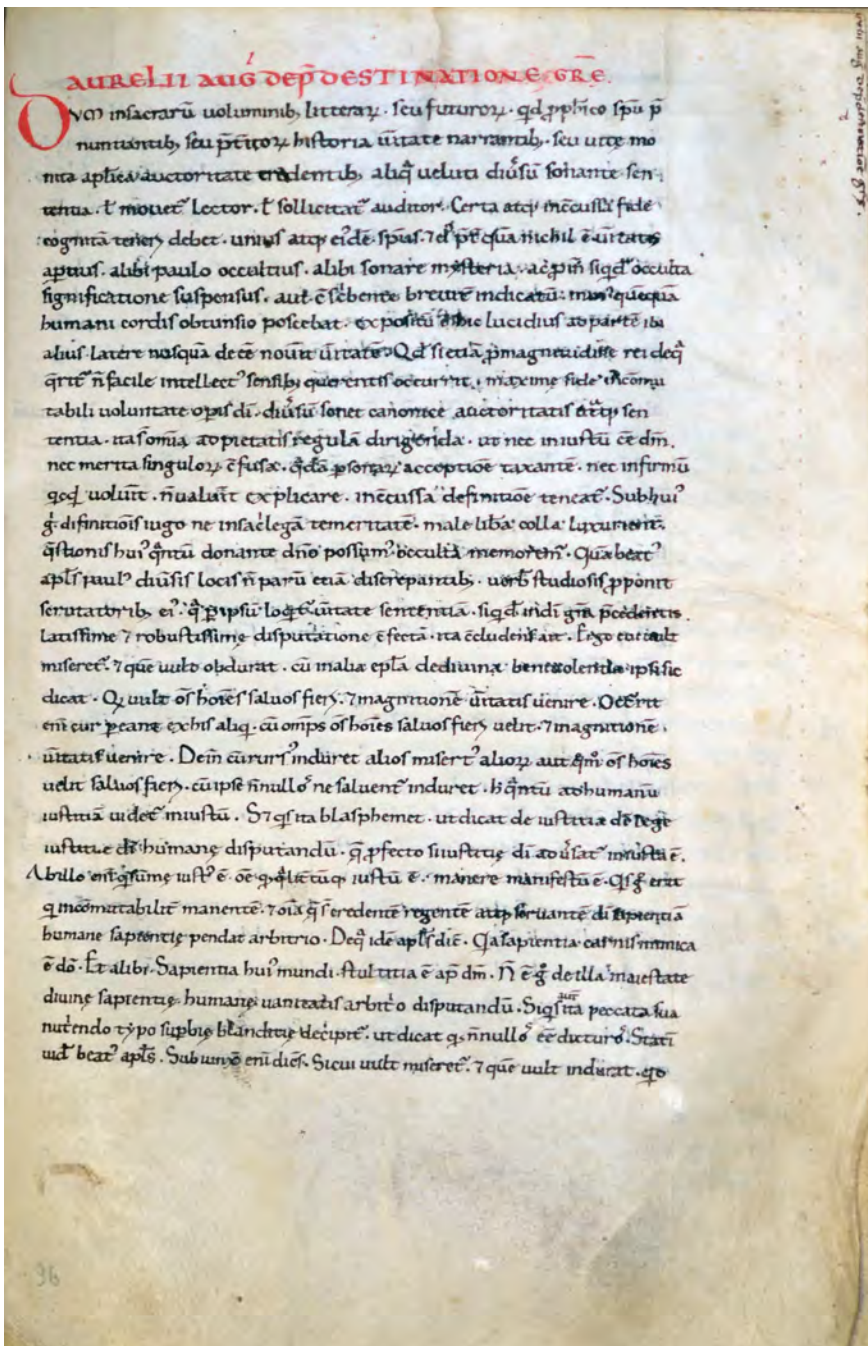 AURELII AUG̅ DE P̅DESTINATIONE GR̅E.
Dvm in sacrarū uoluminib; litterarꝝ. seu futuroꝝ. qd̄ ꝓph̅ico sp̅u p̅
nuntiantib; seu p̅titoꝝ historia ūitate narrantib;. seu uitę mo
nita ap̅lica auctoritate credentib; aliq̄ ueluti diu̅sū sonante sen
tentia. l̅ mouet᷑ lector. l̅ sollicitat᷑ auditor. Certa atq; inc̅cussa fide
cognitā debet. unius atq; ei᷒dē sp̅us. ⁊ nichil ē ūitatis
aptius. alibi paulo occultius. alibi sonare mysteria. siqd̄ occulta
significatione suspensus. aut ē sc̅bente breuit᷑ indicatū.
humani cordis obtunsio poscebat. expositū lucidius
alius latere nosquā
q̅rit᷑ n̅ facile intellect᷒ sensib; querentis occurrit. maxime fide incōmu
tabili uoluntate op̅is di̅. diu̅sū sonet canonice auctoritatis sen
tentia. ita s̅ om̅ia ad pietatis regulā dirigenda. ut nec iniustū ēē dm̅.
nec merita singuloꝝ acceptiōe taxantē. nec infirmū
qcqd̄ uoluit. n̅ ualuit explicare. inc̅cussa definitiōe teneat᷑. Sub hui᷒
g̊ difinitiōis iugo ne in sac̅legā temeritatē. male lib̅a colla luxurient.
q̅stionis hui᷒ q̅ntū donante dn̅o possum᷒ occulta memorem᷒. Quā beat᷒
ap̅ls paul᷒ diu̅sis locis n̅ parū etiā discrepantib;. uerb̅ studiosis ꝓponit
scrutatorib; ei᷒. q̅ p ipsū loq̅t᷑ ūitate sententiā. siqd̄ indi̅ gr̅a p̅cedentis
latissime ⁊ robustissime disputatione ē fecta. ita c̅cludens ait. Ergo cui uult
miseret᷑. ⁊ quē uult obdurat. cū in alia ep̅la de diuina beneuolentia ipse sic
dicat. Q̅ uult os̅ hoīes saluos fieri. ⁊ in agnitionē ūitatis uenire.
eni̅ cur pereant ex his aliq̅. cū om̅ps os̅ hoīes saluos fieri uelit. ⁊ in agnitionē
ūitatis uenire. Dein̅ cū rurs᷒ induret alios misert᷒ alioꝝ aut q̅m̊ os̅ hoīes
uelit saluos fieri. cū ipse n̅nullos ne saluent᷑ induret. h̅ q̅ntū ad humanū
iustitiā uidet᷑ iniustū. S; qs ita blasphemet. ut dicat de iustitia di̅ lege
iustitię humanę disputandū. q̅ ꝓfecto si iustitię di̅ adu̅sat᷑ iniusta ē.
Ab illo eni̅ q̅ sumę iust᷒ ē. oē q; q̅lit᷑cūq; iustū ē. manere manifestū ē. Qs g̊ erit
q incōmutabilit᷑ manentē. ⁊ oīa regentē atq; seruantē di̅ sapientiā
humane sapientię pendat arbitrio. De q̅ idē ap̅ls dic̅. Q̅a sapientia carnis inimica
ē do̅. Et alibi. Sapientia hui᷒ mundi. stultitia ē ap̅ dm̅. N̅ ē g̊ de illa maiestate
diuinę sapientię. humanę uanitatis arbit̊o disputandū. Siqs aut̅ ita peccata sua
nut̅iendo typo sup̅bię blanditię decipit᷑. ut dicat q; n̅nullos ēē dicturos. Statī
uid̅ beat᷒ ap̅ls. eni̅ dicēs. Si cui uult miseret᷑. ⁊ quē uult indurat.
96